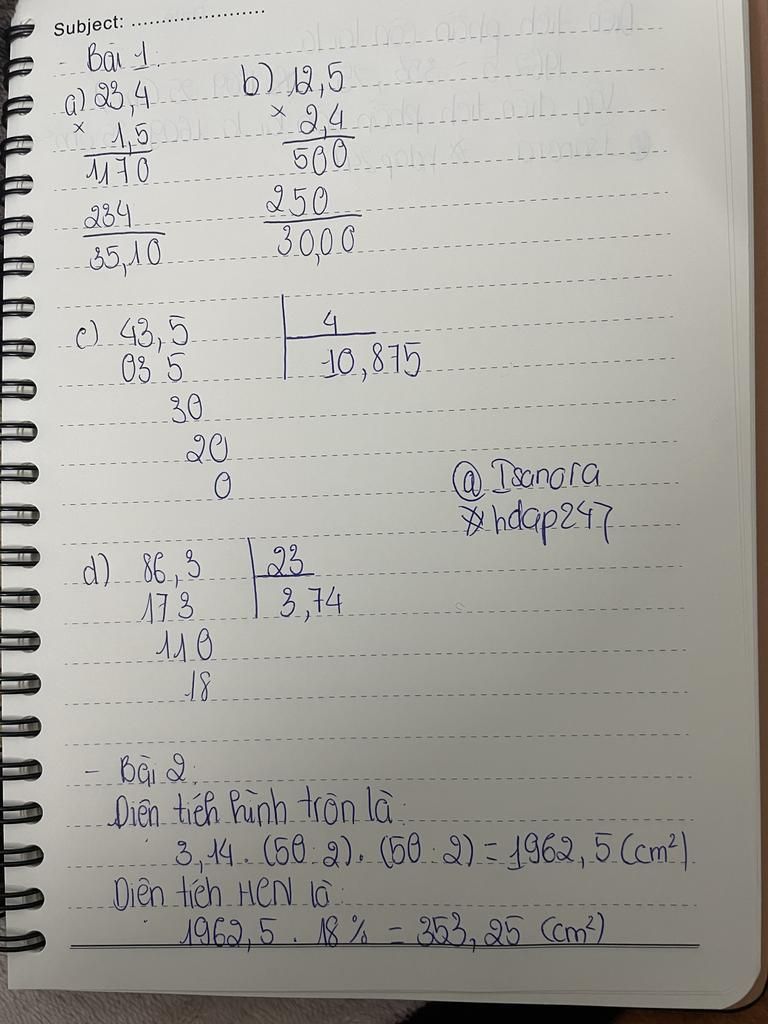 Subject: ......................
- Bài 1:
a) 23,4
×
1,5
1170
234
35,10
b) 12,5
×
2,4
500
250
30,00
c) 43,5 4
03 5 10,875
30
20
0
@Isanora
hdap247
d) 86,3 23
173 3,74
110
18
- Bài 2:
Diện tích hình tròn là:
3,14 . (50 : 2) . (50 : 2) = 1962,5 (cm²)
Diện tích HCN là:
1962,5 . 18% = 353,25 (cm²)